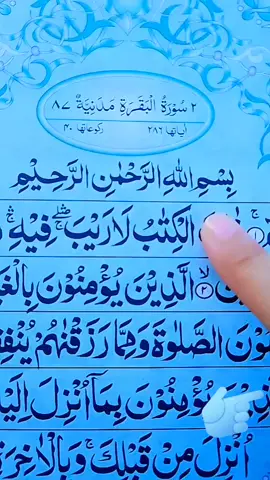 ٢ سُوْرَةُ الْبَقَرَةِ مَدَنِيَّةٌ ٨٧
اٰياتها ٢٨٦ ركوعاتها ٤٠
بِسْمِ اللهِ الرَّحْمٰنِ الرَّحِيْمِ
١ الْكِتٰبُ لَا رَيْبَ فِيْهِ
الَّذِيْنَ يُؤْمِنُوْنَ بِالْغَ
وْنَ الصَّلٰوةَ وَمِمَّا رَزَقْنٰهُمْ يُنْفِقُ
يُؤْمِنُوْنَ بِمَآ اُنْزِلَ اِلَيْ
اُنْزِلَ مِنْ قَبْلِكَ وَبِالْاٰخِرَةِ